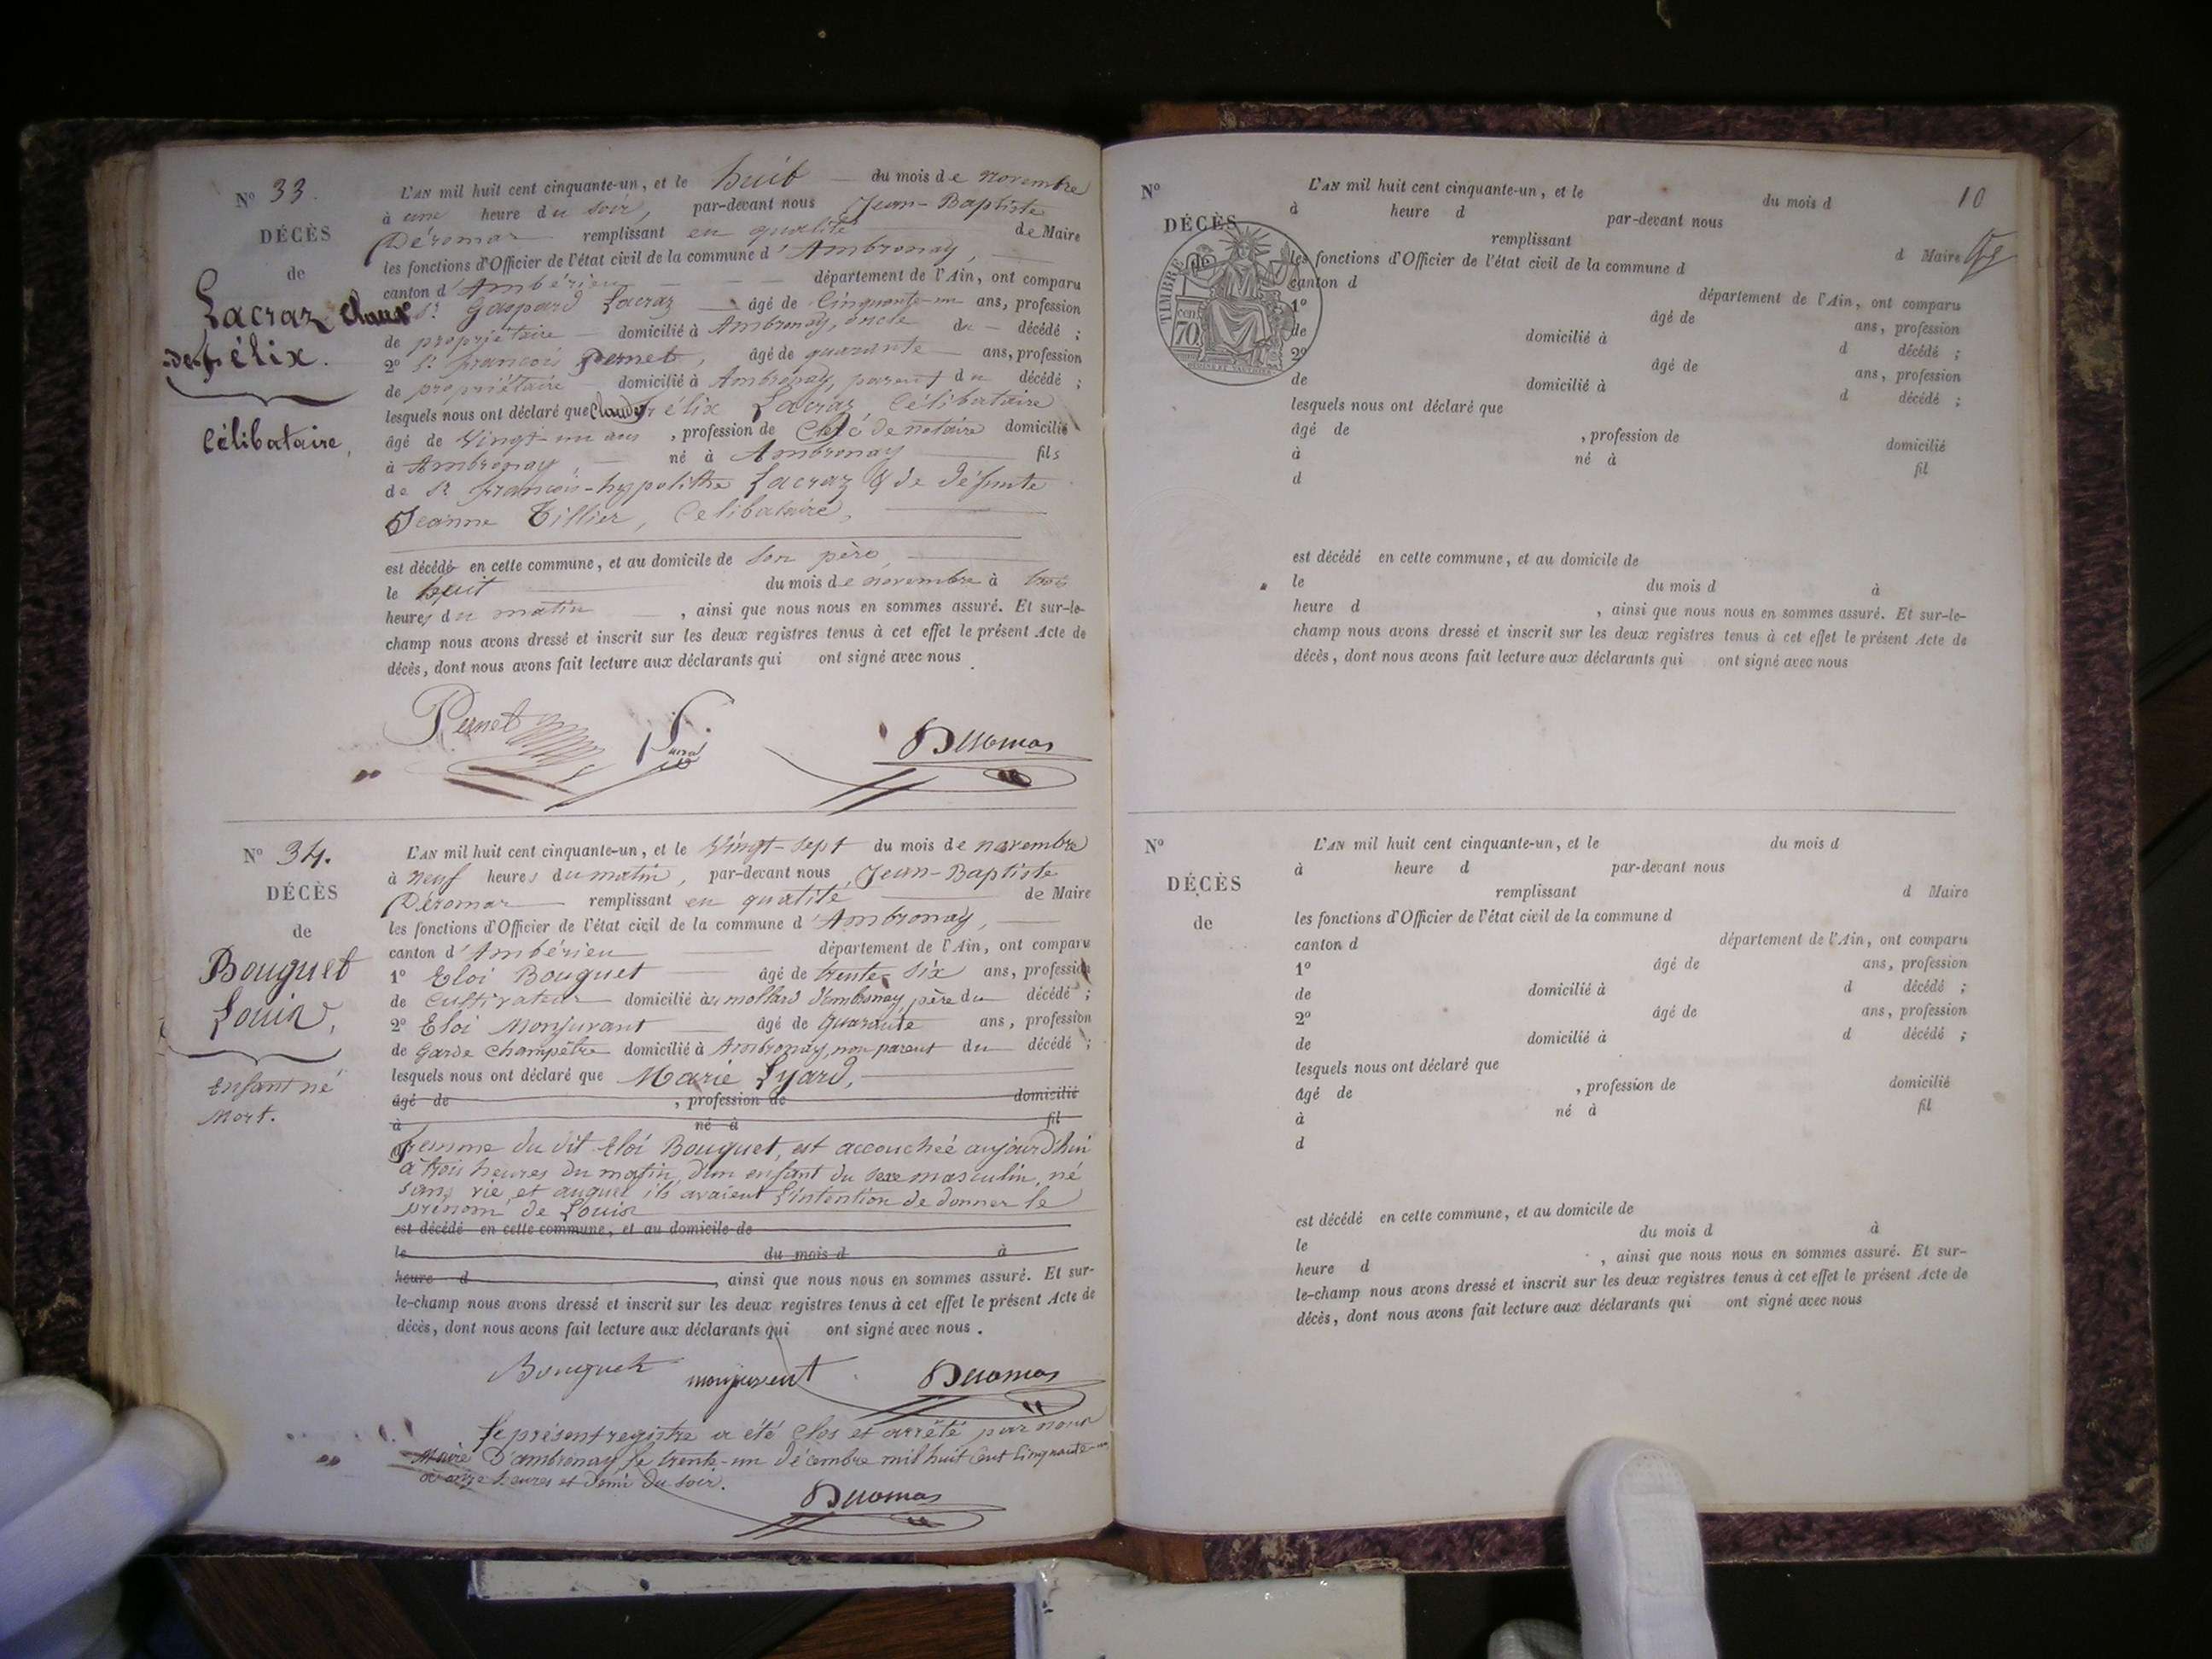 N° 33.
DÉCÈS
de
Lacraz Claude
Félix.
Célibataire,
L'AN mil huit cent cinquante-un, et le huit du mois de novembre
à une heure du soir, par-devant nous Jean-Baptiste
Déromas remplissant en qualité de Maire
les fonctions d'Officier de l'état civil de la commune d'Ambronay,
canton d'Ambérieu département de l'Ain, ont comparu
Sr Gaspard Lacraz âgé de Cinquante-un ans, profession
de propriétaire domicilié à Ambronay, oncle du décédé ;
2° Sr françois Pernet, âgé de quarante ans, profession
de propriétaire domicilié à Ambronay, parent du décédé ;
lesquels nous ont déclaré que Claude félix Lacraz Célibataire
âgé de Vingt-un ans , profession de Clerc de notaire domicilié
à Ambronay, né à Ambronay fils
de Sr françois-hypolithe Lacraz & de défunte
Jeanne Tillier, Célibataire,
est décédé en cette commune, et au domicile de son père,
le huit du mois de novembre à trois
heures du matin , ainsi que nous nous en sommes assuré. Et sur-le-
champ nous avons dressé et inscrit sur les deux registres tenus à cet effet le présent Acte de
décès, dont nous avons fait lecture aux déclarants qui ont signé avec nous .
Pernet Deromas
N° 34.
DÉCÈS
de
Bouguet
Louis,
Enfant né
Mort.
L'AN mil huit cent cinquante-un, et le Vingt-sept du mois de novembre
à neuf heures du matin, par-devant nous Jean-Baptiste
Déromas remplissant en qualité de Maire
les fonctions d'Officier de l'état civil de la commune d'Ambronay,
canton d'Ambérieu département de l'Ain, ont comparu
1° Eloi Bouguet âgé de trente six ans, profession
de Cultivateur domicilié au mollard d'ambronay père du décédé ;
2° Eloi Monjuvant âgé de Quarante ans, profession
de Garde Champêtre domicilié à Ambronay, non parent du décédé ;
lesquels nous ont déclaré que Marie Lyard,
âgé de , profession de domicilié
à né à fil
femme du dit Eloi Bouguet, est accouchée aujourd'hui
à trois heures du matin, d'un enfant du sexe masculin, né
sans vie, et auquel ils avaient l'intention de donner le
prénom de Louis
est décédé en cette commune, et au domicile de
le du mois d à
heure d , ainsi que nous nous en sommes assuré. Et sur-
le-champ nous avons dressé et inscrit sur les deux registres tenus à cet effet le présent Acte de
décès, dont nous avons fait lecture aux déclarants qui ont signé avec nous .
Bouguet monjuvent Deromas
Le présent registre a été Clos et arrêté par nous
Maire D'ambronay le trente-un décembre mil huit Cent Cinquante-un
à onze heures et demi du soir.
Deromas
10
N°
DÉCÈS
TIMBRE
70
L'AN mil huit cent cinquante-un, et le du mois d
à heure d par-devant nous
remplissant d Maire
les fonctions d'Officier de l'état civil de la commune d
canton d département de l'Ain, ont comparu
1° âgé de ans, profession
de domicilié à d décédé ;
2° âgé de ans, profession
de domicilié à d décédé ;
lesquels nous ont déclaré que
âgé de , profession de domicilié
à né à fil
d
est décédé en cette commune, et au domicile de
le du mois d à
heure d , ainsi que nous nous en sommes assuré. Et sur-le-
champ nous avons dressé et inscrit sur les deux registres tenus à cet effet le présent Acte de
décès, dont nous avons fait lecture aux déclarants qui ont signé avec nous
N°
DÉCÈS
de
L'AN mil huit cent cinquante-un, et le du mois d
à heure d par-devant nous
remplissant d Maire
les fonctions d'Officier de l'état civil de la commune d
canton d département de l'Ain, ont comparu
1° âgé de ans, profession
de domicilié à d décédé ;
2° âgé de ans, profession
de domicilié à d décédé ;
lesquels nous ont déclaré que
âgé de , profession de domicilié
à né à fil
d
est décédé en cette commune, et au domicile de
le du mois d à
heure d , ainsi que nous nous en sommes assuré. Et sur-
le-champ nous avons dressé et inscrit sur les deux registres tenus à cet effet le présent Acte de
décès, dont nous avons fait lecture aux déclarants qui ont signé avec nous